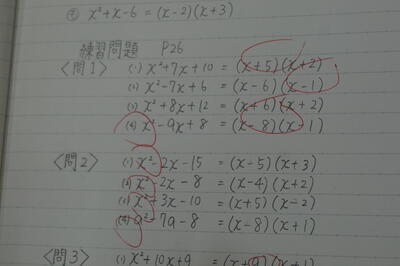 ⑦ x²+x-6=(x-2)(x+3)
練習問題 P26
〈問1〉 (1) x²+7x+10 = (x+5)(x+2)
(2) x²-7x+6 = (x-6)(x-1)
(3) x²+8x+12 = (x+6)(x+2)
(4) x²-9x+8 = (x-8)(x-1)
〈問2〉 (1) x²-2x-15 = (x-5)(x+3)
(2) x²-2x-8 = (x-4)(x+2)
(3) x²+3x-10 = (x+5)(x-2)
(4) a²-7a-8 = (x-8)(x+1)
〈問3〉 (1) x²+10x+9 = (x+9)(x+1)